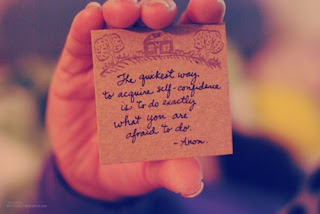 The quickest way
to acquire self-confidence
is to do exactly
what you are
afraid to do.
- Anon.